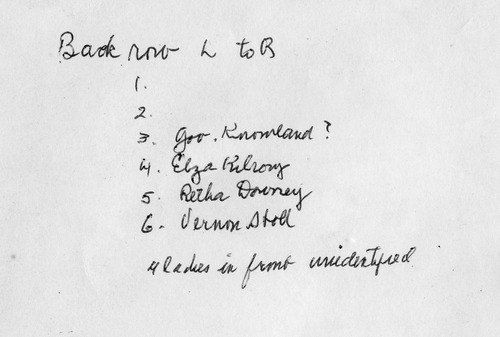 Back row L to R
1.
2.
3. Gov. Knowland?
4. Elza Kilroy
5. Retha Downey
6. Vernon Stoll
4 ladies in front unidentified